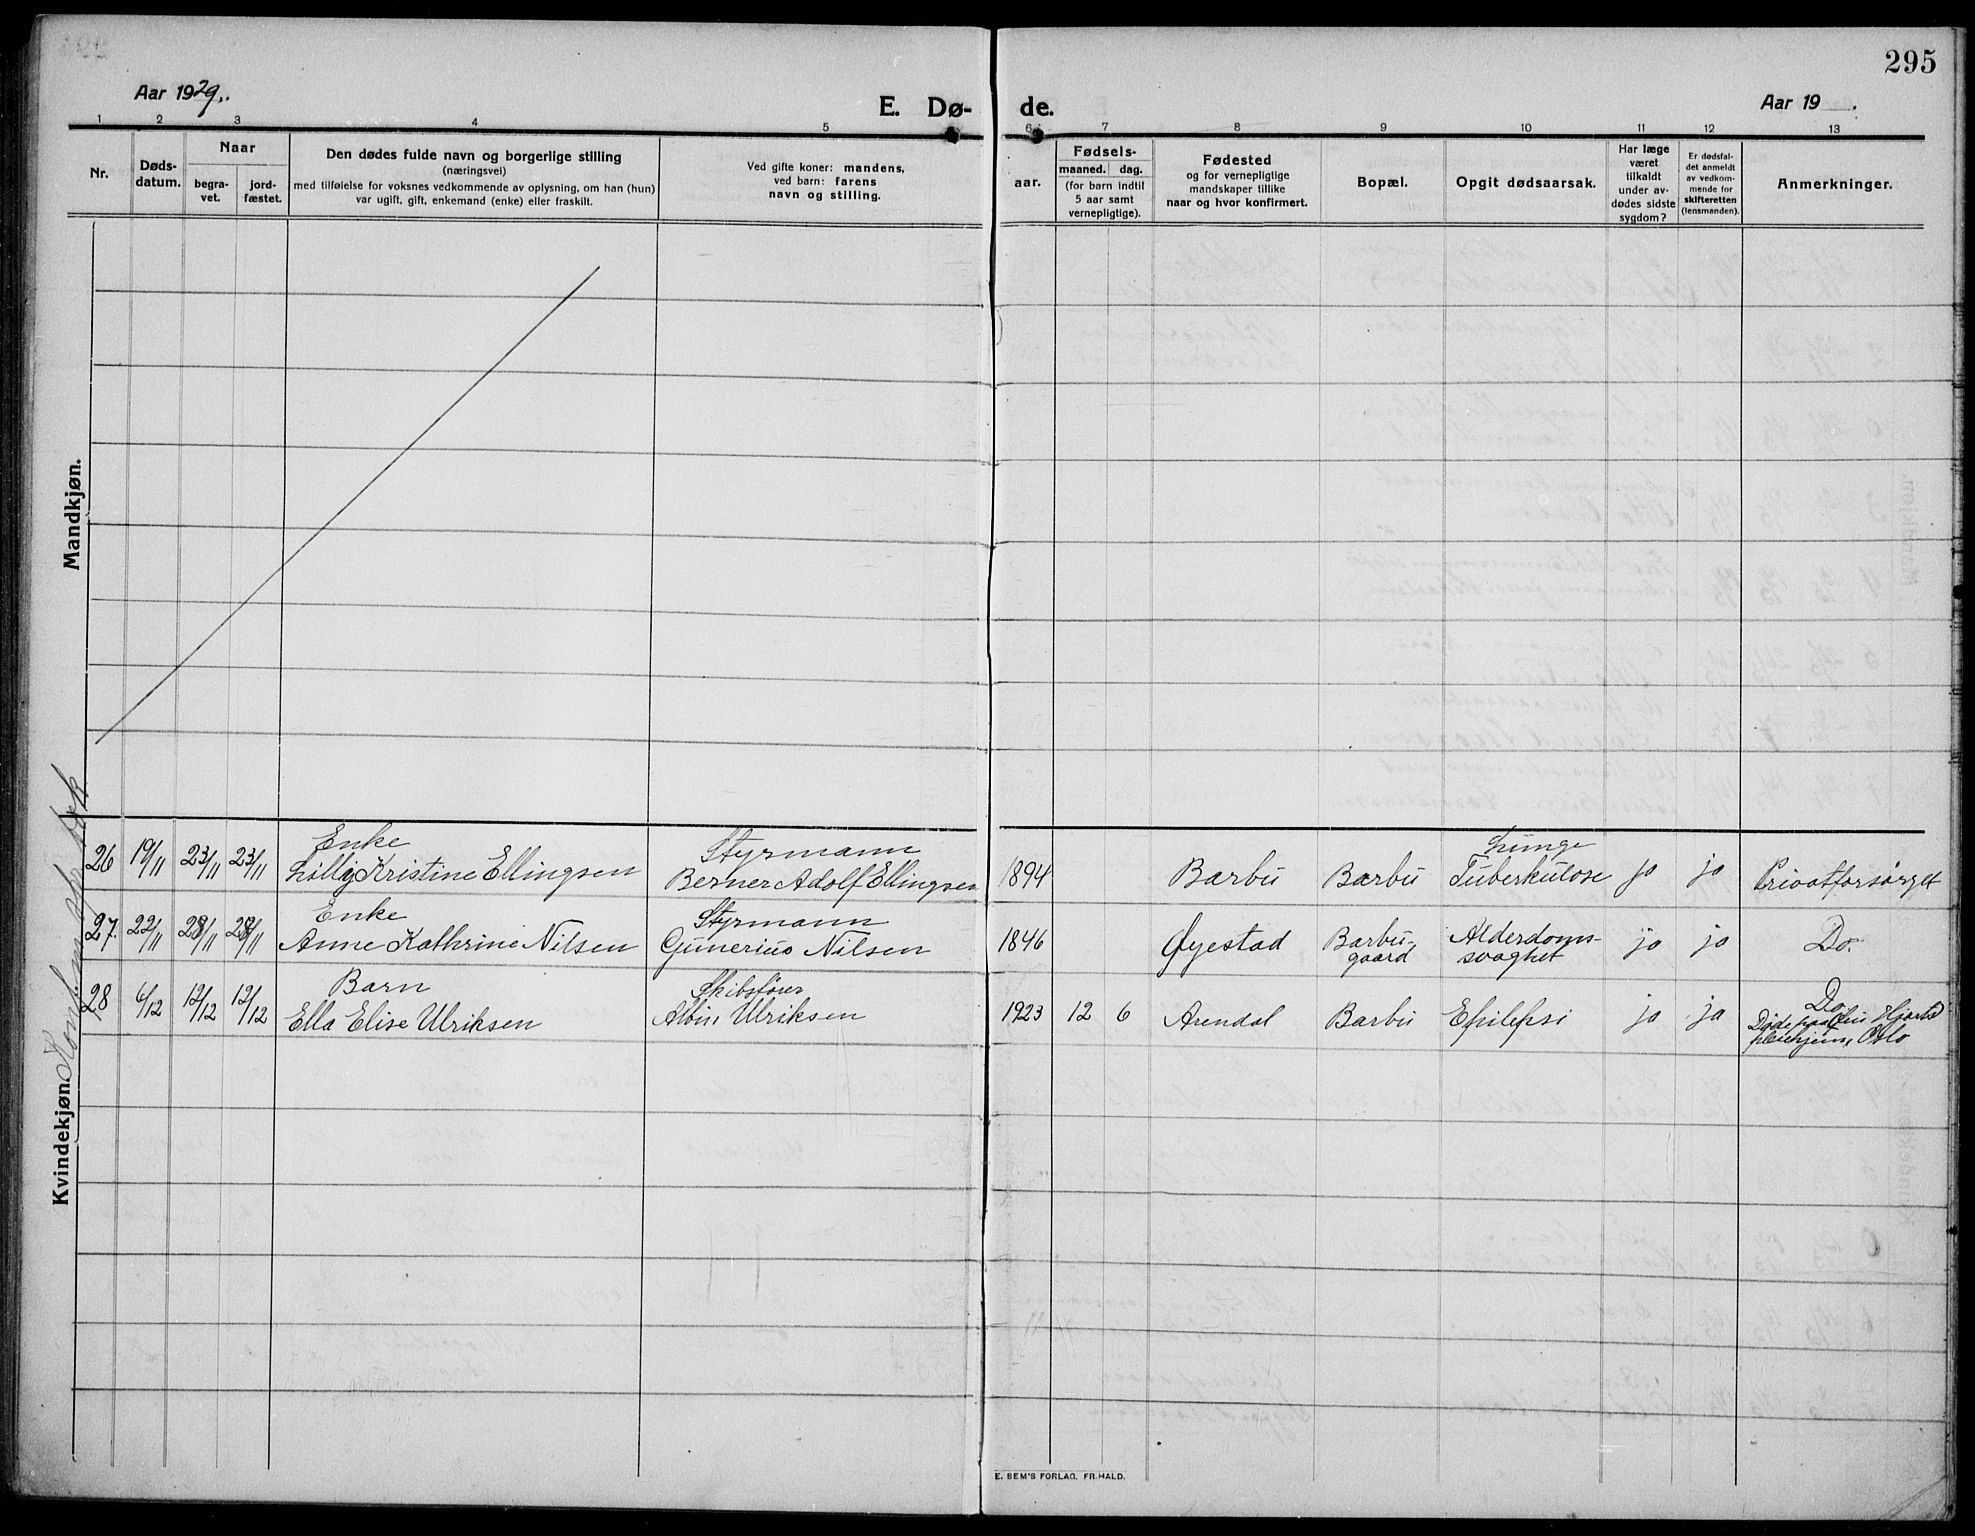 295
Aar 1929.
E. Dø-
de.
Aar 19 .
1 2 3 4 5 6 7 8 9 10 11 12 13
Nr.
Døds-
datum.
Naar
begra-
vet.
jord-
fæstet.
Den dødes fulde navn og borgerlige stilling
(næringsvei)
med tilføielse for voksnes vedkommende av oplysning, om han (hun)
var ugift, gift, enkemand (enke) eller fraskilt.
Ved gifte koner: mandens,
ved barn: farens
navn og stilling.
aar.
Fødsels-
maaned. dag.
(for barn indtil
5 aar samt
vernepligtige).
Fødested
og for vernepligtige
mandskaper tillike
naar og hvor konfirmert.
Bopæl.
Opgit dødsaarsak.
Har læge
været
tilkaldt
under av-
dødes sidste
sygdom?
Er dødsfal-
det anmeldt
av vedkom-
mende for
skifteretten
(lensmanden).
Anmerkninger.
Mandkjøn.
Kvindekjøn.
Enke Styrmann Lunge
26 19/11 23/11 23/11 Lilly Kristine Ellingsen Berner Adolf Ellingsen 1894 Barbu Barbu Tuberkulose ja ja Privatforsørget
Enke Styrmann
27. 22/11 28/11 28/11 Anne Kathrine Nilsen Gunerius Nilsen 1846 Øyestad Barbu- Alderdoms- ja ja Do.
gaard svaghet
Barn Skibsfører Do
28 6/12 12/12 12/12 Ella Elise Ulriksen Albin Ulriksen 1923 12 6 Arendal Barbu Epilepsi ja ja
Døde paa Hjorts
pleiehjem, Oslo
E. SEM'S FORLAG, FR.HALD.